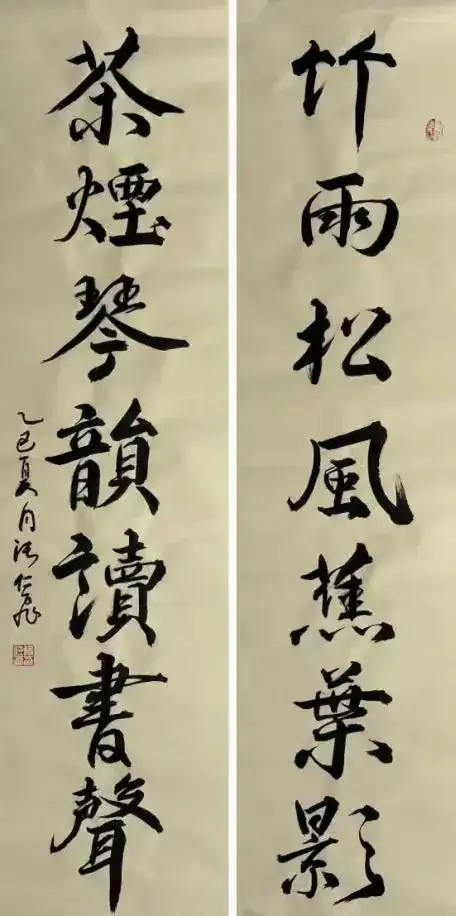 竹雨松風蕉葉影
茶煙琴韻讀書聲
乙巳夏月